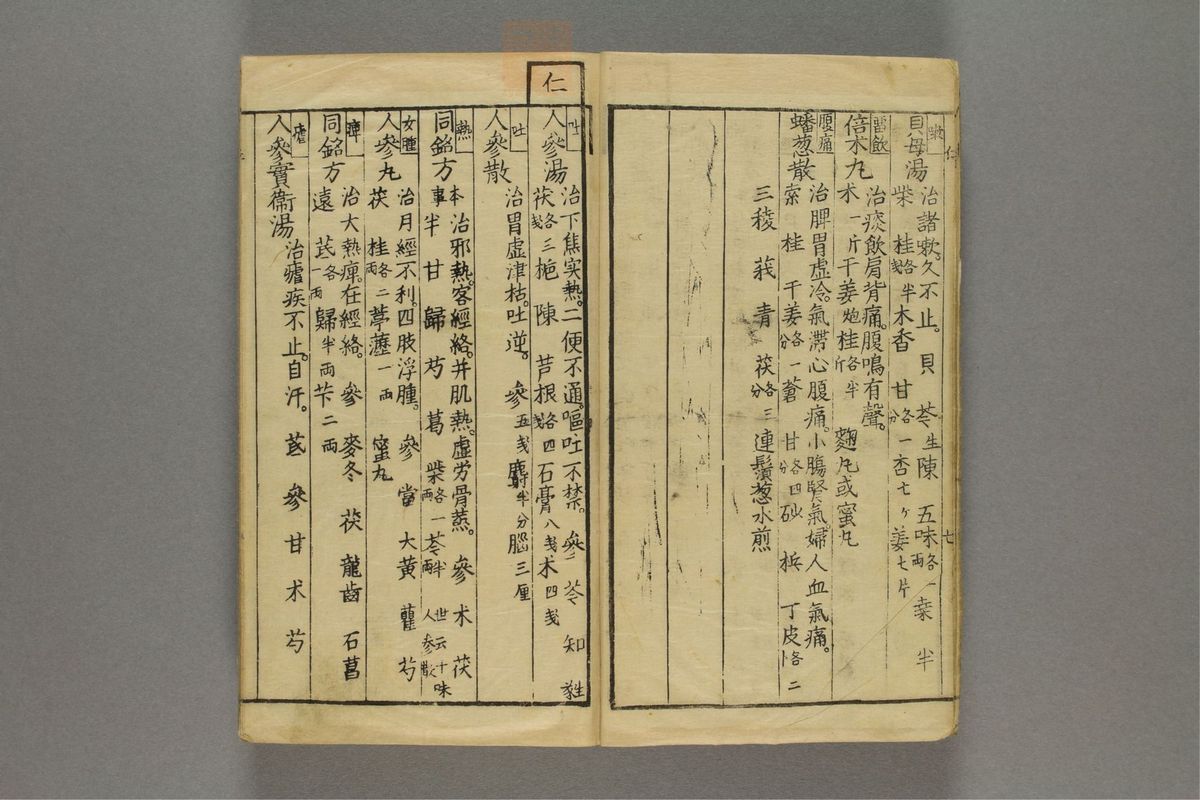 嗽
貝母湯
治諸嗽久不止。貝 苓生 陳 五味各一両 桑 半
柴 桂各半戔 木香 甘各一分 杏七ケ 姜七片
留飲
倍术丸
治痰飲肩背痛。腹鳴有聲。
术一斤 干姜炮 桂各半斤 麹丸或蜜丸
腹痛
蟠葱散
治脾胃虚冷。氣滞心腹痛。小腸腎氣。婦人血氣痛。
索 桂 干姜各一分 蒼 甘各四分 砂 梹 丁皮各二
三稜 莪 青 茯各三分 連鬚葱水煎
七
仁
吐
人參湯
治下焦実熱。二便不通。嘔吐不禁。參 苓 知
茯各三戔 梔 陳 芦根各四戔 石膏八戔 术四戔
吐
人參散
治胃虚津枯。吐逆。參五戔 麝半分 腦三厘
熱
同銘方
本事 治邪熱。客經絡。并肌熱。虚労骨蒸。參 术 茯
半 甘 歸 芍 葛 柴各一両 芩半両 世云十味人参散
女腫
人參丸
治月經不利。四肢浮腫。參 當 大黄 芍
茯 桂各二両 葶藶一両 蜜丸
痺
同銘方
治大熱痺。在經絡。參 麥冬 茯 龍齒 石菖
遠 芪各一両 歸半両 芐二両
瘧
人參實衞湯
治瘧疾不止。自汗。芪 參 甘 术 芍